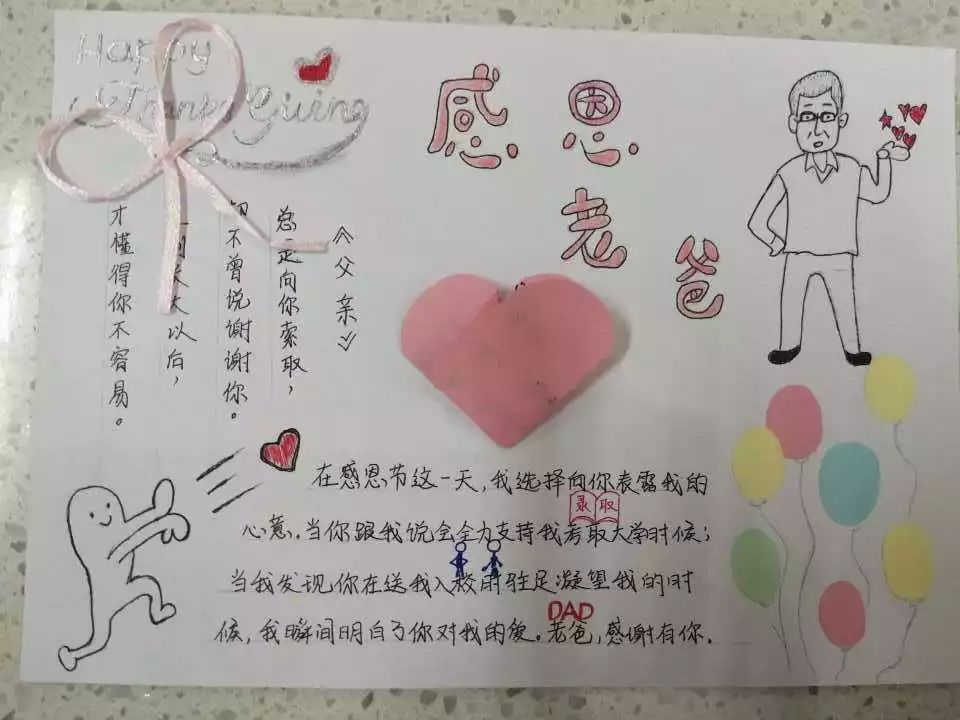 Happy
ThanksGiving
感恩
老
爸
《父亲》
总是向你索取，
不曾说谢谢你。
大以后，
才懂得你不容易。
在感恩节这一天，我选择向你表露我的
录取
心意。当你跟我说会全力支持我考取大学时候；
当我发现你在送我入校时驻足凝望我的时
DAD
候，我瞬间明白了你对我的爱。老爸，感谢有你。